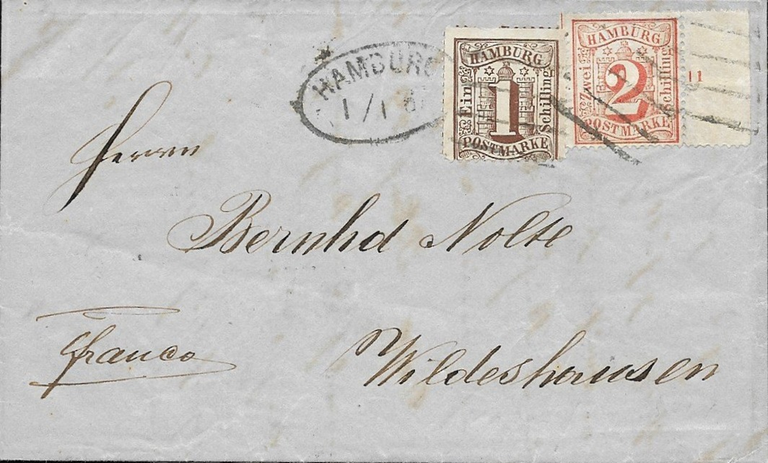 HAMBURG
1/1 6
HAMBURG
Ein
1
Schilling
POSTMARKE
HAMBURG
Zwei
2
Schilling
POSTMARKE
11
Herrn
Bernhd Nolte
franco
Wildeshausen